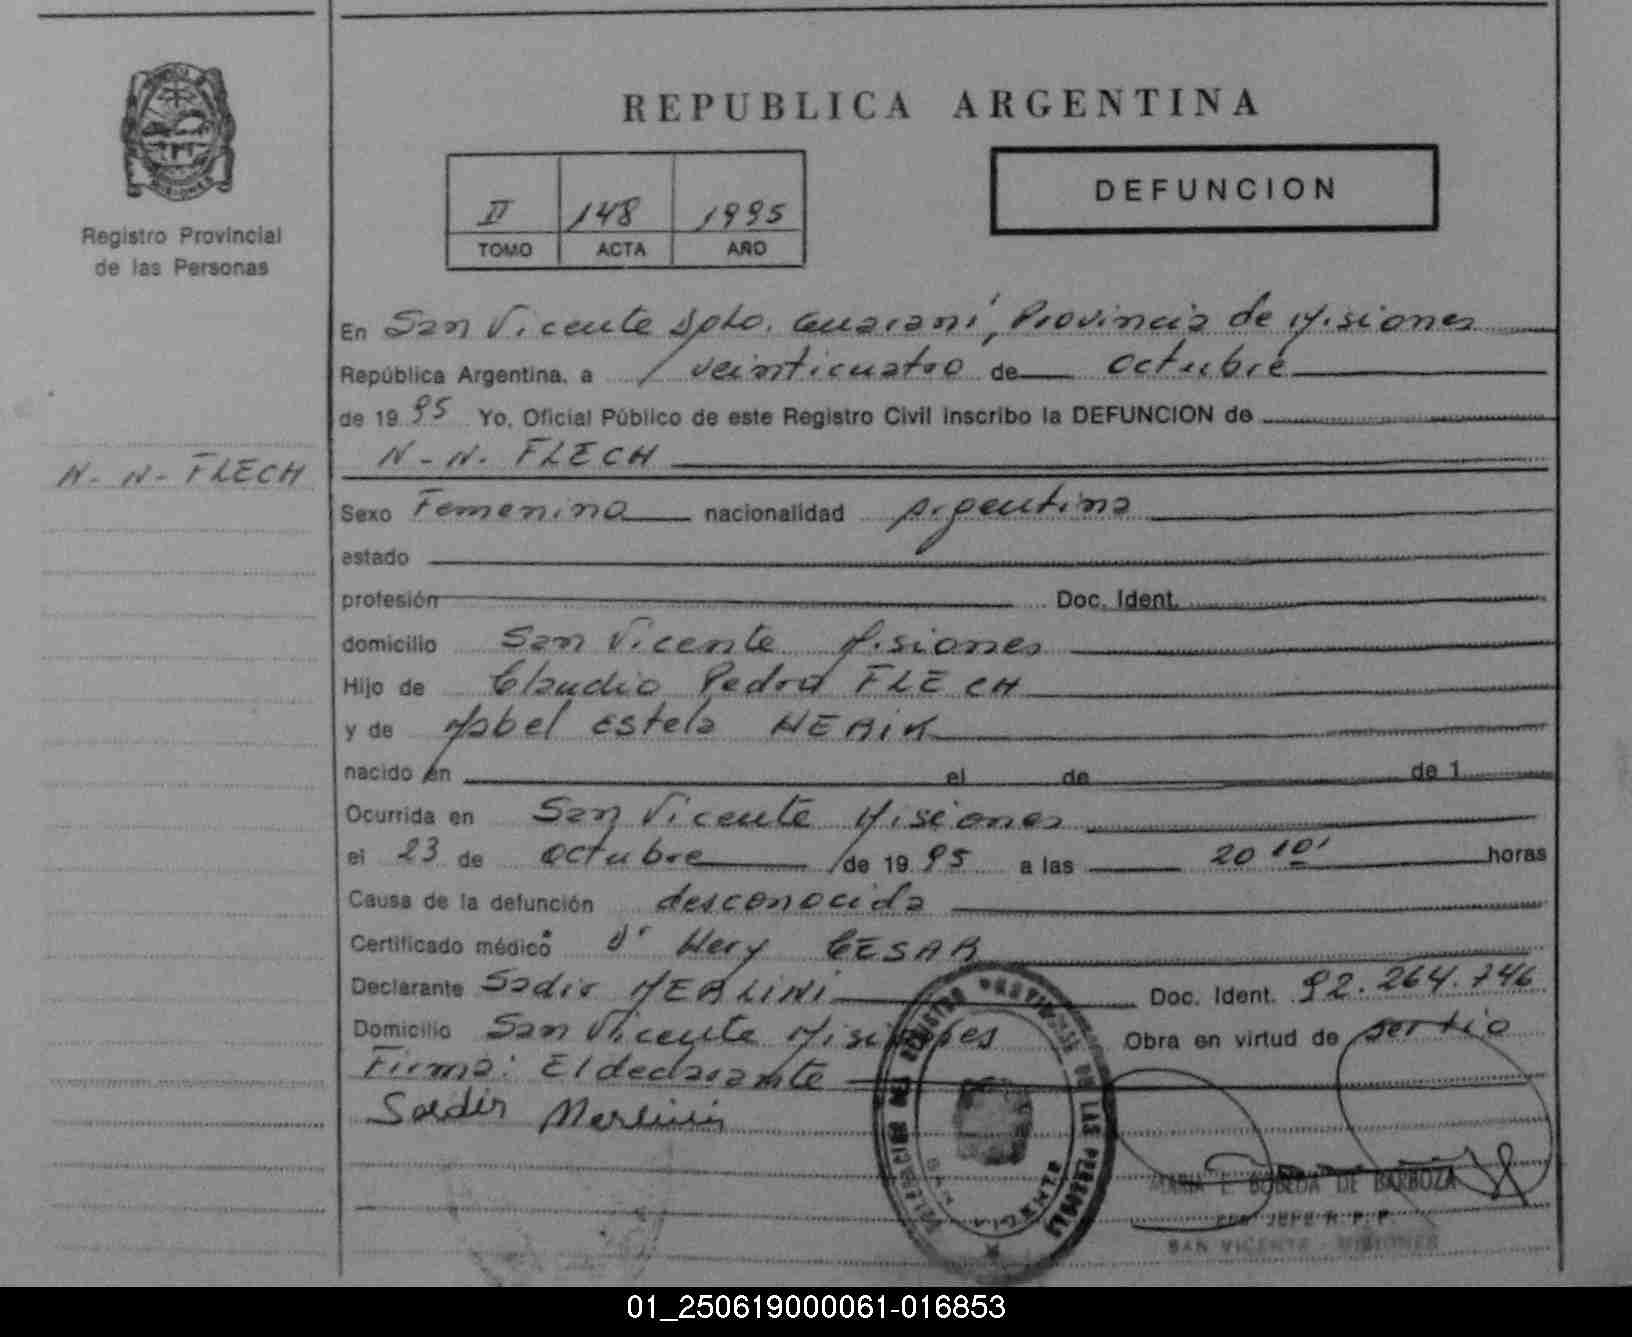 REPUBLICA ARGENTINA
DEFUNCION
II 148 1995
TOMO ACTA AÑO
Registro Provincial
de las Personas
N-N-FLECH
En San Vicente Dpto. Guaraní, Provincia de Misiones
República Argentina, a veinticuatro de octubre
de 1995 Yo, Oficial Público de este Registro Civil inscribo la DEFUNCION de
N-N. FLECH
Sexo Femenina nacionalidad Argentina
estado
profesión Doc. Ident.
domicilio San Vicente Misiones
Hijo de Claudio Pedro FLECH
y de Mabel Estela
nacido en el de de 1
Ocurrida en San Vicente Misiones
el 23 de octubre de 1995 a las 20 10' horas
Causa de la defunción desconocida
Certificado médico Dr Hery CESAR
Declarante Sadir MERLINI Doc. Ident. 92.264.746
Domicilio San Vicente Misiones Obra en virtud de
Firma: El declarante
Sadir Merlini
MARIA E. BOBEDA DE BARBOZA
JEFE R. P. P.
SAN VICENTE - MISIONES
01_250619000061-016853